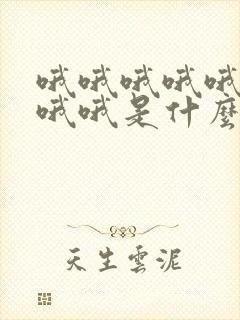 哦哦哦哦哦
哦哦是什麼
天生雲泥